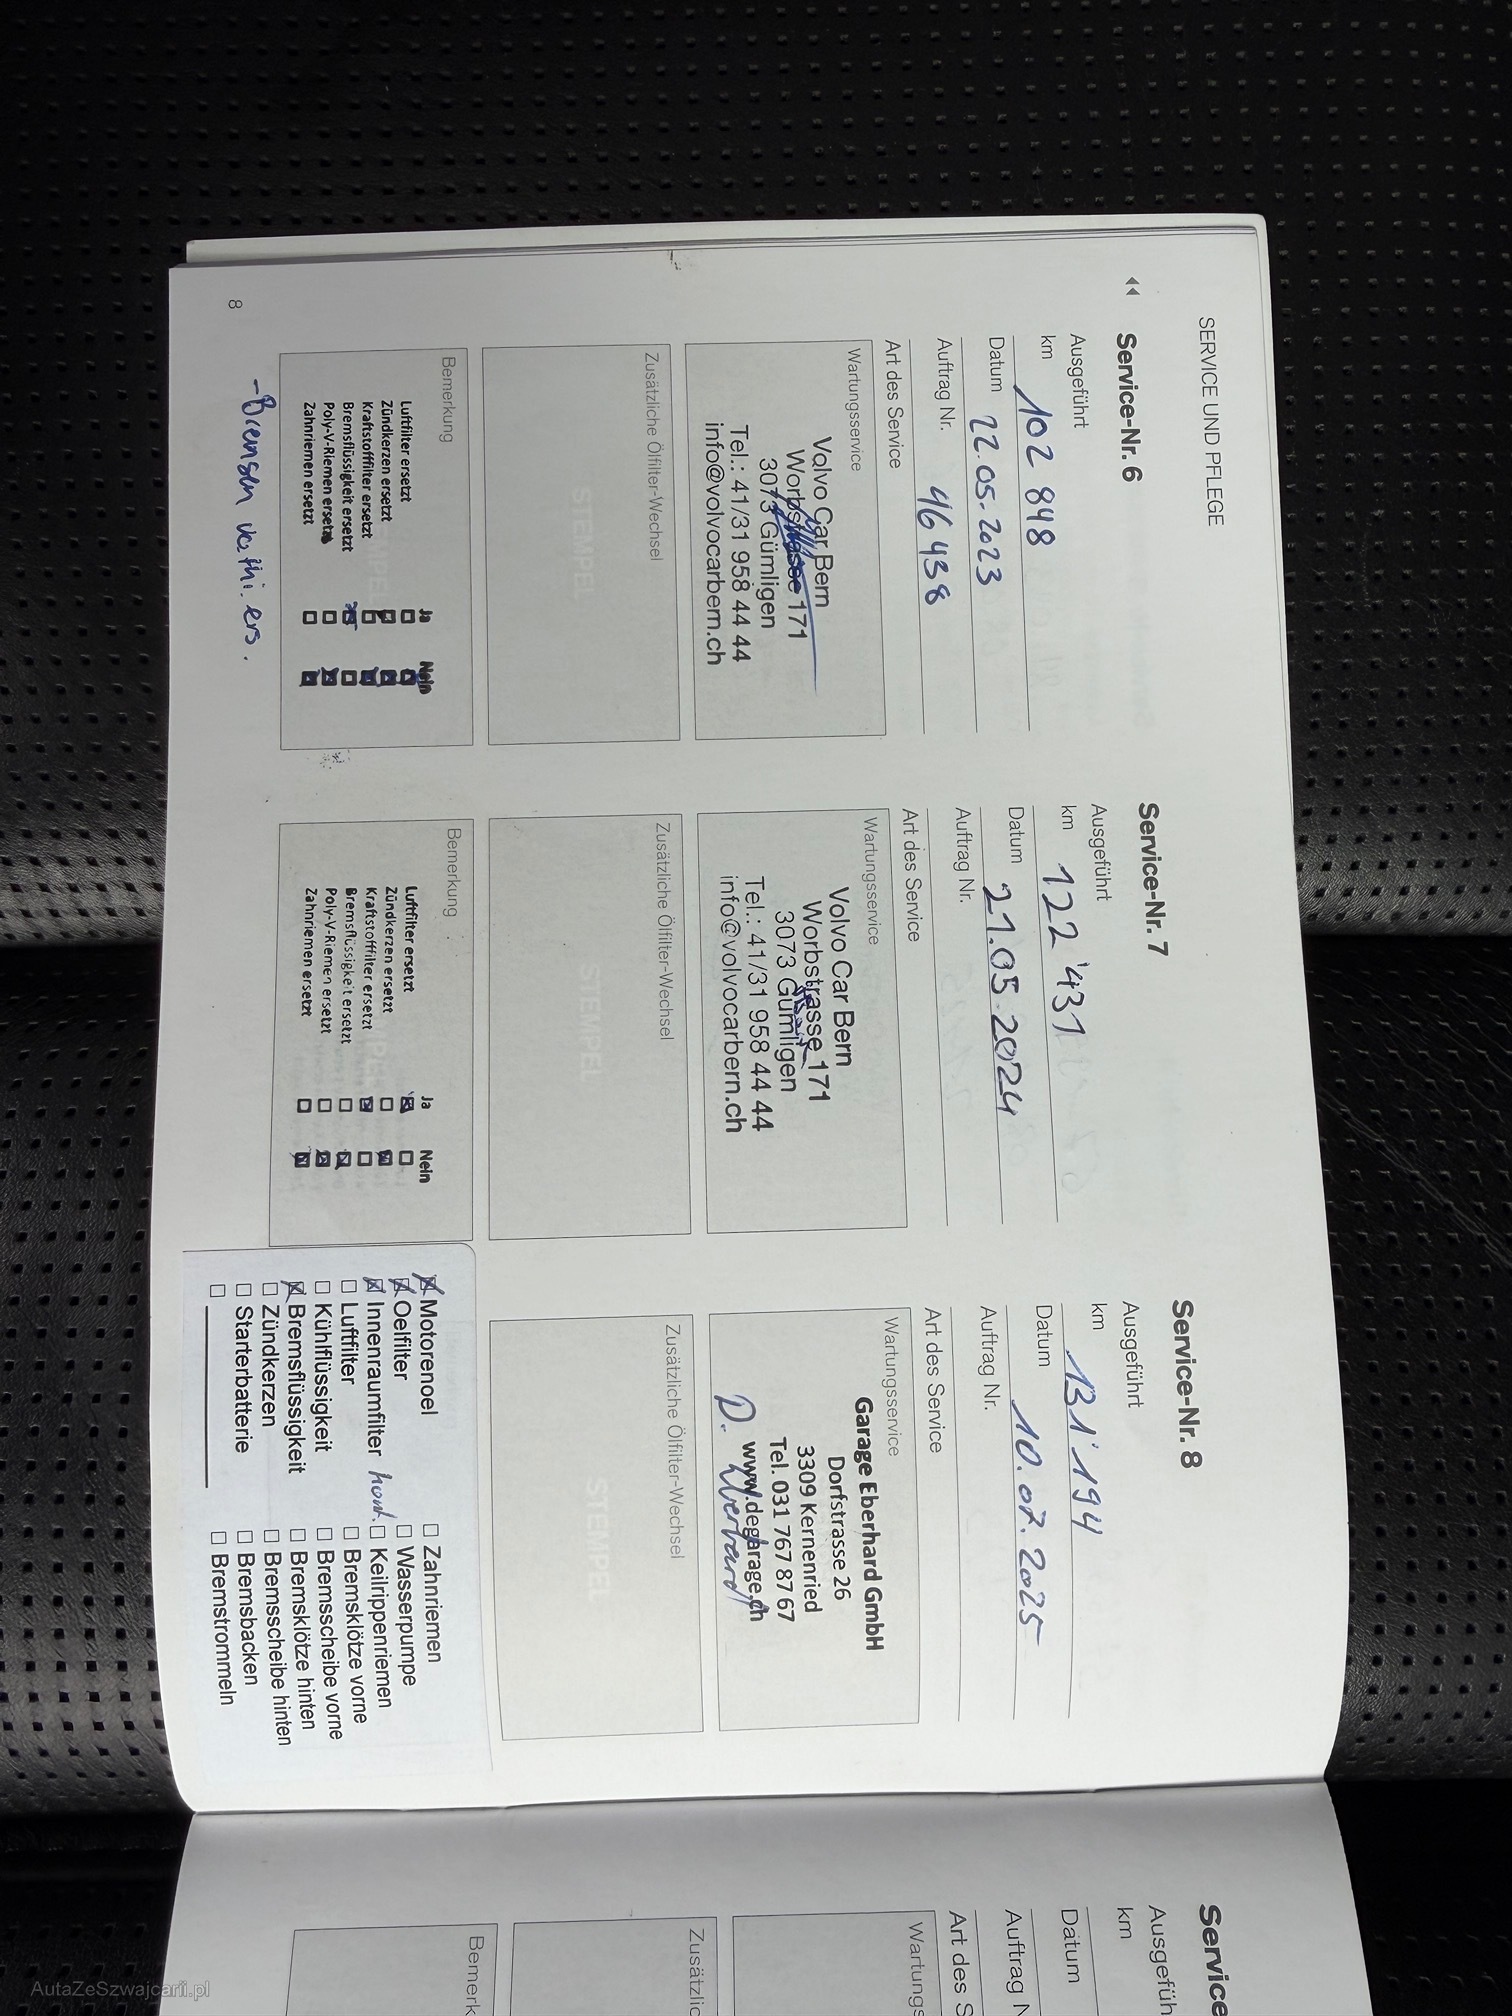 SERVICE UND PFLEGE
Service-Nr. 6
Ausgeführt
km 102 848
Datum 22.05.2023
Auftrag Nr. 46 438
Art des Service
Wartungsservice
Volvo Car Bern
Worbstrasse 171
3073 Gümligen
Tel.: 41/31 958 44 44
info@volvocarbern.ch
Zusätzliche Ölfilter-Wechsel
STEMPEL
Bemerkung
Ja Nein
Luftfilter ersetzt
Zündkerzen ersetzt
Kraftstofffilter ersetzt
Bremsflüssigkeit ersetzt
Poly-V-Riemen ersetzt
Zahnriemen ersetzt
- Bremsen ers.
8
Service-Nr. 7
Ausgeführt
km 122'431
Datum 21.05.2024
Auftrag Nr.
Art des Service
Wartungsservice
Volvo Car Bern
Worbstrasse 171
3073 Gümligen
Tel.: 41/31 958 44 44
info@volvocarbern.ch
Zusätzliche Ölfilter-Wechsel
STEMPEL
Bemerkung
Ja Nein
Luftfilter ersetzt
Zündkerzen ersetzt
Kraftstofffilter ersetzt
Bremsflüssigkeit ersetzt
Poly-V-Riemen ersetzt
Zahnriemen ersetzt
Service-Nr. 8
Ausgeführt
km 131'194
Datum 10.07.2025
Auftrag Nr.
Art des Service
Wartungsservice
Garage Eberhard GmbH
Dorfstrasse 26
3309 Kernenried
Tel. 031 767 87 67
www.degarage.ch
D. Eberhard
Zusätzliche Ölfilter-Wechsel
STEMPEL
Motorenoel
Oelfilter
Innenraumfilter
Luftfilter
Kühlflüssigkeit
Bremsflüssigkeit
Zündkerzen
Starterbatterie
Zahnriemen
Wasserpumpe
Keilrippenriemen
Bremsklötze vorne
Bremsscheibe vorne
Bremsklötze hinten
Bremsscheibe hinten
Bremsbacken
Bremstrommeln
Service
Ausgefüh
km
Datum
Auftrag N
Art des S
Wartungs
Zusätzlic
Bemerk
AutaZeSzwajcarii.pl